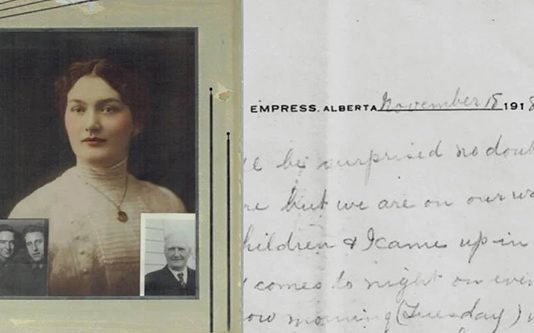 EMPRESS. ALBERTA November 18 191
be surprised no doubt
but we are on our wa
hildren & I came up in
comes to night on even
ow morning (Tuesday)